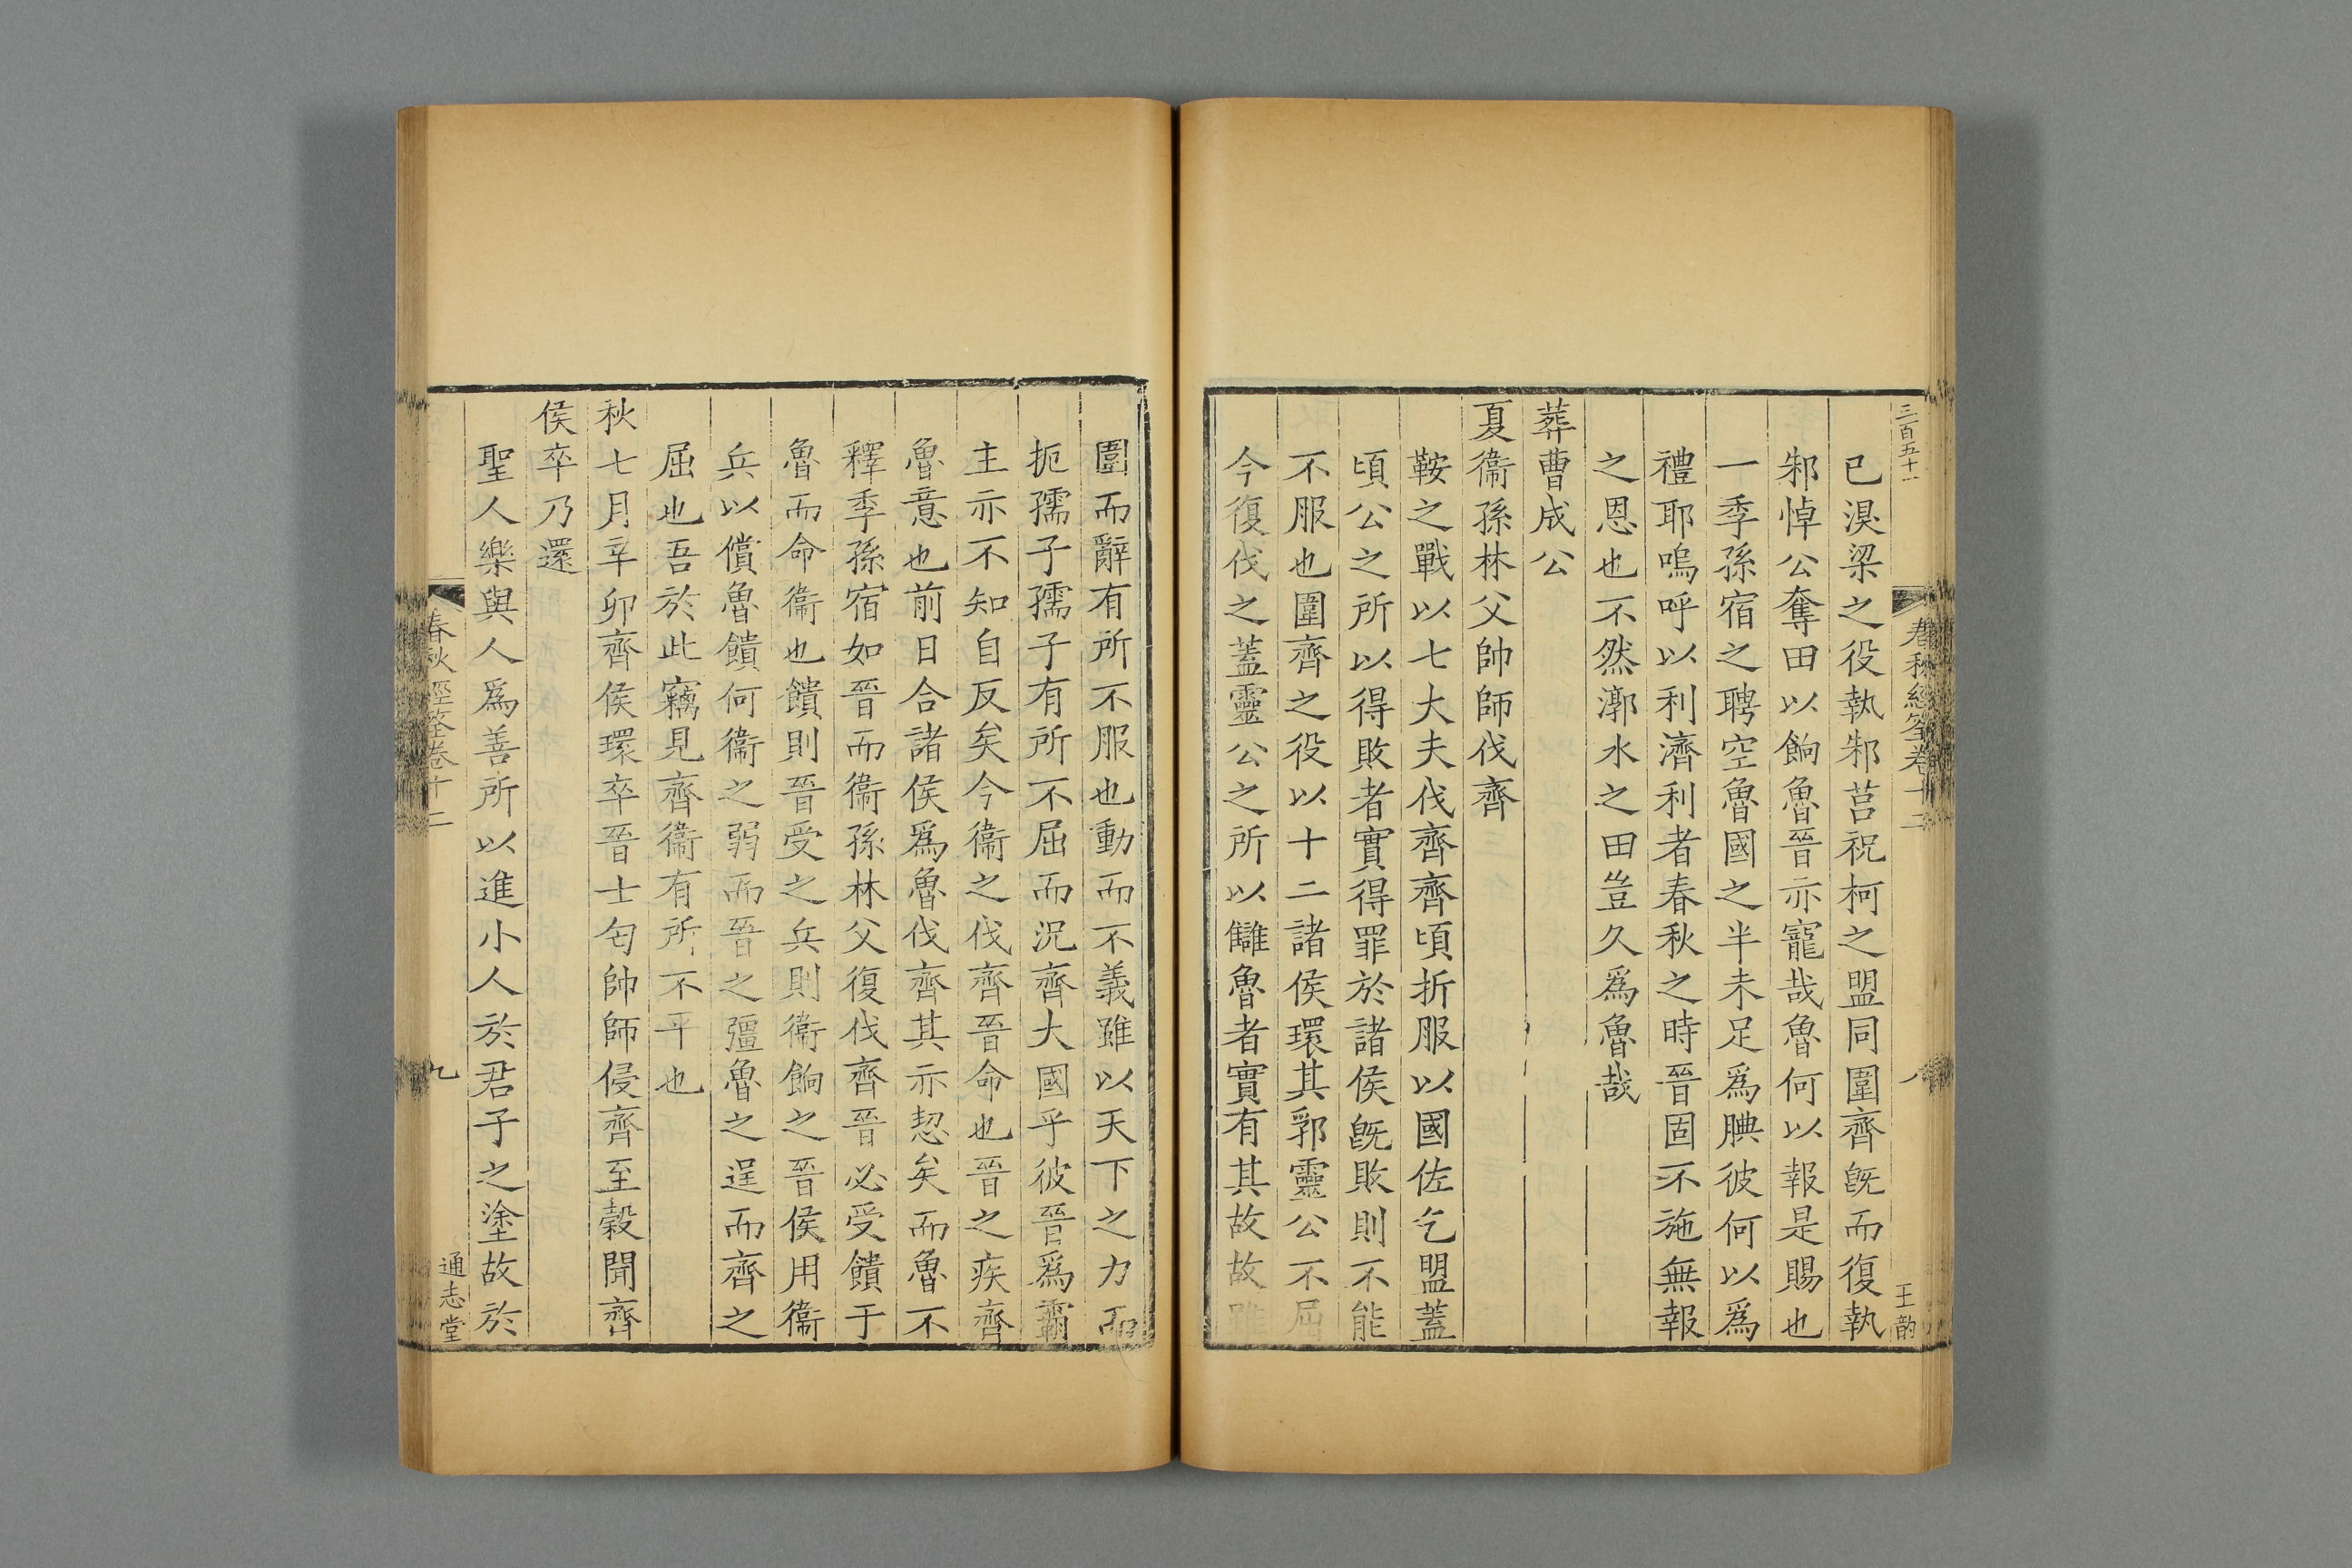 三百五十一
春秋經筌卷十二
王的
已湨梁之役執邾莒祝柯之盟同圍齊旣而復執
邾悼公奪田以餉魯晉亦寵哉魯何以報是賜也
一季孫宿之聘空魯國之半未足爲腆彼何以爲
禮耶嗚呼以利濟利者春秋之時晉固不施無報
之恩也不然漷水之田豈久爲魯哉
葬曹成公
夏衞孫林父帥師伐齊
鞍之戰以七大夫伐齊齊頃折服以國佐乞盟蓋
頃公之所以得敗者實得罪於諸侯旣敗則不能
不服也圍齊之役以十二諸侯環其郛靈公不屈
今復伐之蓋靈公之所以讎魯者實有其故故雖
圍而辭有所不服也動而不義雖以天下之力而
扼孺子孺子有所不屈而況齊大國乎彼晉爲霸
主亦不知自反矣今衞之伐齊晉命也晉之疾齊
魯意也前日合諸侯爲魯伐齊其亦恝矣而魯不
釋季孫宿如晉而衞孫林父復伐齊晉必受饋于
魯而命衞也饋則晉受之兵則衞餉之晉侯用衞
兵以償魯饋何衞之弱而晉之彊魯之逞而齊之
屈也吾於此竊見齊衞有所不平也
秋七月辛卯齊侯環卒晉士匄帥師侵齊至穀聞齊
侯卒乃還
聖人樂與人爲善所以進小人於君子之塗故於
春秋經筌卷十二
九
通志堂